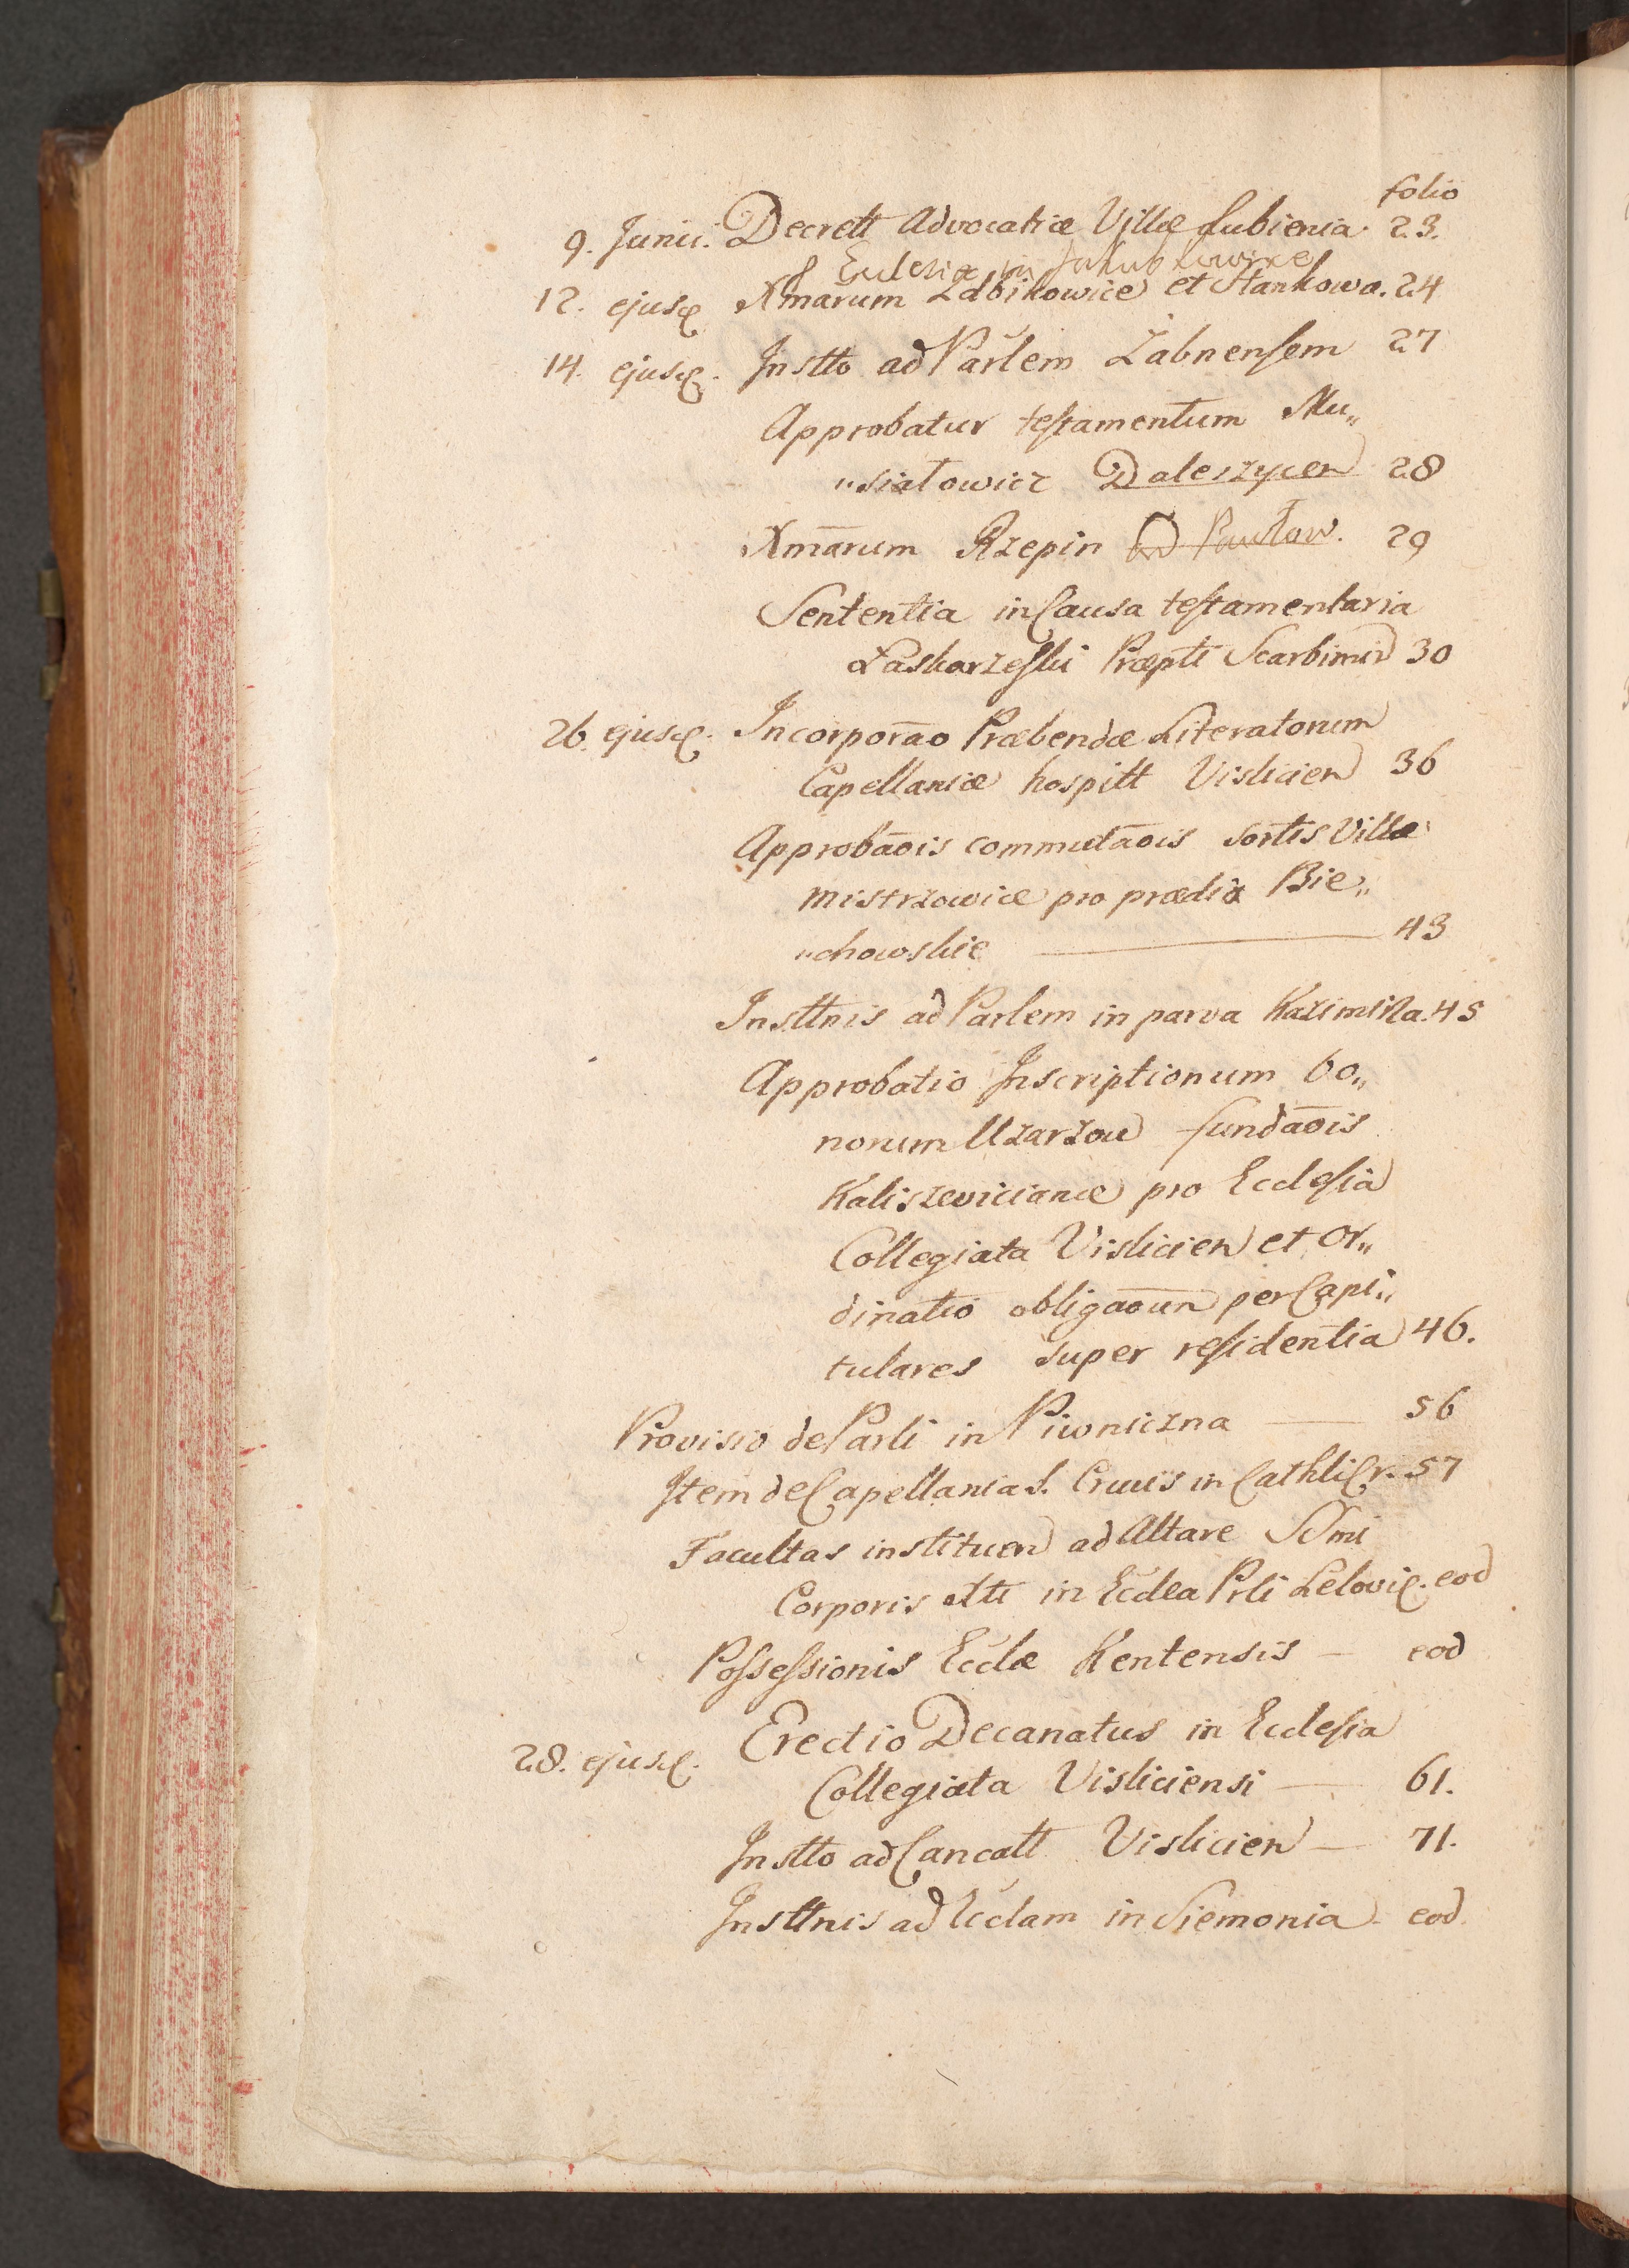 folio
9. Junii. Decrett Advocatiæ Villæ Lubienia 23.
Ecclesiæ in Jakubkowice
12. ejusd. Xmarum Zdbikowice et Stankowa. 24
14. ejusd. Instto ad Par̄lem Żabnensem 27
Approbatur testamentum Mu„
„siałowicz Daleszycen 28
Xmārum Rzepin Pawłow. 29
Sententia in Causa testamentaria
Laskarzeski Præptt Scarbimir 30
26. ejusd. Incorporāo Præbendæ Literatorum
Capellaniæ hospitt Vislicien 36
Approbāois commutāois sortis Villæ
Mistrzowice pro prædia Bie„
„chowskie 43
Insttnis ad Parlem in parva Kazimirza. 45
Approbatio Inscriptionum bo„
norum Uzarzow fundāois
Kaliszewicianæ pro Ecclesia
Collegiata Vislicien et or„
dinatio obligāoum per Capi„
tulares super residentia 46.
Provisio de Parli in Piwniczna 56
Item de Capellania S. Crucis in Cathli Cr. 57
Facultas instituen ad Altare SSmi
Corporis Xti in Eccla Prli Lelovi. eod
Possessionis Ecclæ Kentensis — eod
28. ejusd. Erectio Decanatus in Ecclesia
Collegiata Visliciensi — 61.
Instto ad Cancatt Vislicien — 71.
Insttnis ad Ecclam in Siemonia eod